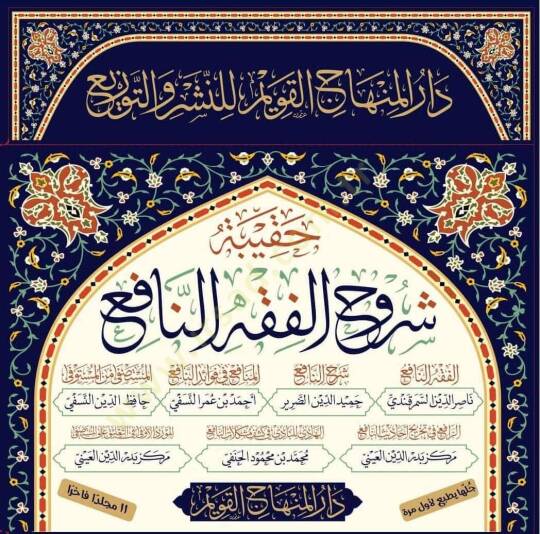 دار المنهاج القويم للنشر والتوزيع
حقيبة
شروح الفقه النافع
الفقه النافع
ناصر الدين السمرقندي
شرح النافع
حميد الدين الضرير
المنافع في فوائد النافع
أحمد بن عمر النسفي
المستصفى من المستوفى
حافظ الدين النسفي
الرافع في تخريج أحاديث النافع
مركز بدر الدين العيني
الهادي للبادي في كشف مشكلات النافع
محمد بن محمود الحنفي
المورد
مركز بدر الدين العيني
جلها يطبع لأول مرة
دار المنهاج القويم
١١ مجلدا فاخرا